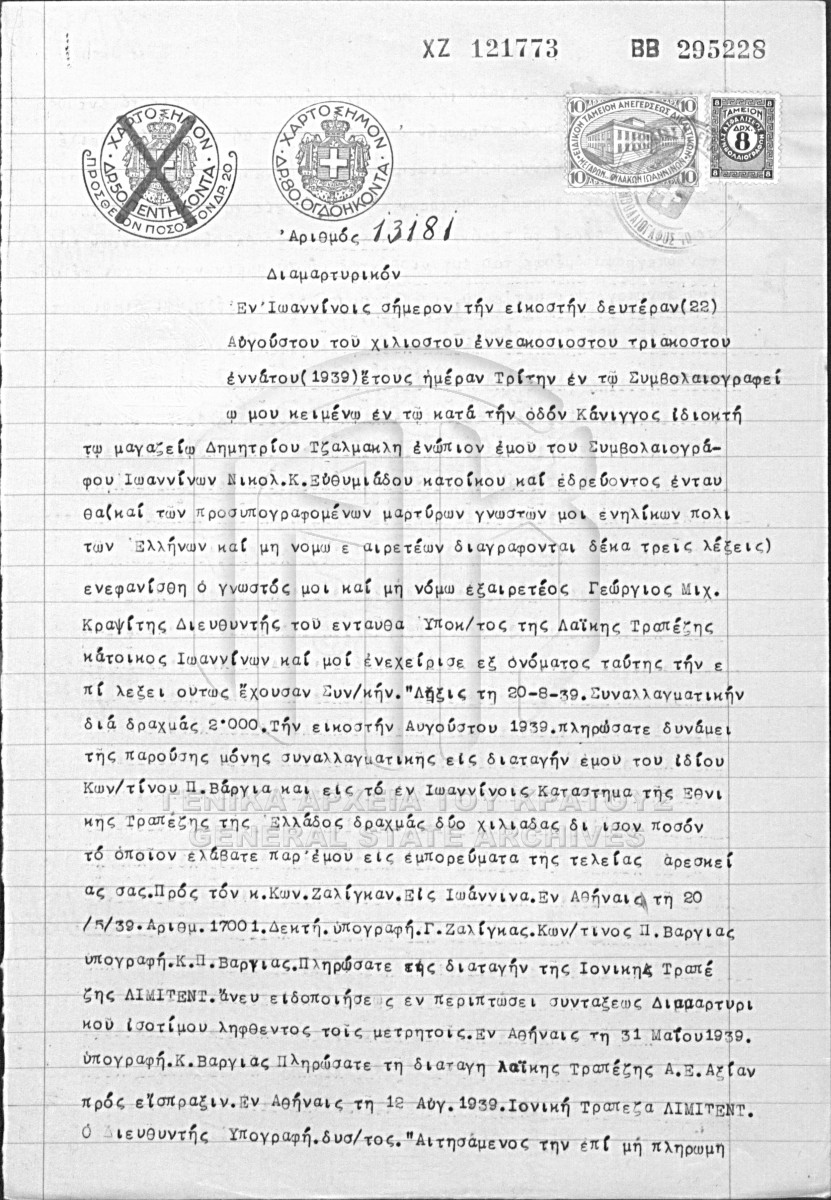 ΧΖ 121773 ΒΒ 295228
ΧΑΡΤΟΣΗΜΟΝ
ΔΡ.50.ΠΕΝΤΗΚΟΝΤΑ
ΠΡΟΣΘΕΤΟΝ ΠΟΣΟΣΤΟΝ ΔΡ. 20
ΧΑΡΤΟΣΗΜΟΝ
ΔΡ.80.ΟΓΔΟΗΚΟΝΤΑ
10 ΔΡΑΧΜΑΙ 10
ΕΙΔΙΚΟΝ ΤΑΜΕΙΟΝ ΑΝΕΓΕΡΣΕΩΣ ΔΙΚΑΣΤΙΚΟΥ
ΜΕΓΑΡΟΥ ΦΥΛΑΚΩΝ ΙΩΑΝΝΙΝΩΝ
10 10
8 8
ΤΑΜΕΙΟΝ
ΑΣΦΑΛΙΣΕΩΣ
ΔΡΧ.
8
ΣΥΜΒΟΛΑΙΟΓΡΑΦΩΝ
8 8
Ἀριθμός 13181
Διαμαρτυρικόν
Ἐν Ἰωαννίνοις σήμερον τήν εἰκοστήν δευτέραν(22)
Αὐγούστου τοῦ χιλιοστου ἐννεακοσιοστου τριακοστου
ἐννάτου(1939)ἔτους ἡμέραν Τρίτην ἐν τῷ Συμβολαιογραφεί
ῳ μου κειμένῳ ἐν τῷ κατά τήν ὁδόν Κάνιγγος ἰδιοκτή
τῳ μαγαζείῳ Δημητρίου Τζαλμακλη ἐνώπιον ἐμοῦ του Συμβολαιογρά-
φου Ἰωαννίνων Νικολ.Κ.Εὐθυμιάδου κατοίκου καί ἑδρεύοντος ἐνταυ
θα(καί των προσυπογραφομένων μαρτύρων γνωστών μοι ενηλίκων πολι
των Ἑλλήνων καί μη νομω ε αιρετέων διαγραφονται δέκα τρεῖς λέξεις)
ενεφανίσθη ὁ γνωστός μοι καί μη νόμω ἐξαιρετέος Γεώργιος Μιχ.
Κραψίτης Διευθυντής του ενταυθα Ὑποκ/τος της Λαϊκης Τραπέζης
κάτοικος Ἰωαννίνων καί μοί ἐνεχείρισε εξ ὀνόματος ταύτης τήν ε
πί λεξει ουτως ἔχουσαν Συν/κήν."Λῆξις τη 20-8-39.Συναλλαγματικήν
διά δραχμάς 2·000.Τήν εικοστήν Αυγούστου 1939.πληρώσατε δυνάμει
τῆς παρούσης μόνης συναλλαγματικης εἰς διαταγήν ἐμου του ἰδίου
Κων/τίνου Π.Βάργια και εἰς τό ἐν Ἰωαννίνοις Καταστημα τῆς Εθνι
κης Τραπέζης της Ἑλλάδος δραχμάς δύο χιλιαδας δι ισον ποσόν
τό ὁποῖον ελάβατε παρ'ἐμου εἰς εμπορεύματα της τελείας ἀρεσκεί
ας σας.Πρός τόν κ.Κων.Ζαλίγκαν.Εἰς Ἰωάννινα.Εν Ἀθήναις τη 20
/5/39.Αριθμ.17001.Δεκτή.ὑπογραφή.Γ.Ζαλίγκας.Κων/τινος Π.Βαργιας
ὑπογραφή.Κ.Π.Βαργιας.Πληρώσατε εἰς διαταγήν της Ιονικης Τραπέ
ζης ΛΙΜΙΤΕΝΤ.ἄνευ ειδοποιήσεως εν περιπτώσει συνταξεως Διαμαρτυρι
κοῦ ἰσοτίμου ληφθεντος τοῖς μετρητοῖς.Εν Αθήναις τη 31 Μαΐου1939.
ὑπογραφή.Κ.Βαργιας Πληρώσατε τη διαταγη Λαϊκης Τραπέζης Α.Ε.Αξίαν
πρός εἴσπραξιν.Εν Ἀθήναις τη 12 Αὐγ.1939.Ιονική Τραπεζα ΛΙΜΙΤΕΝΤ.
Ὁ Διευθυντής Ὑπογραφή.δυσ/τος."Αιτησάμενος την ἐπί μή πληρωμη
ΓΕΝΙΚΑ ΑΡΧΕΙΑ ΤΟΥ ΚΡΑΤΟΥΣ
GENERAL STATE ARCHIVES